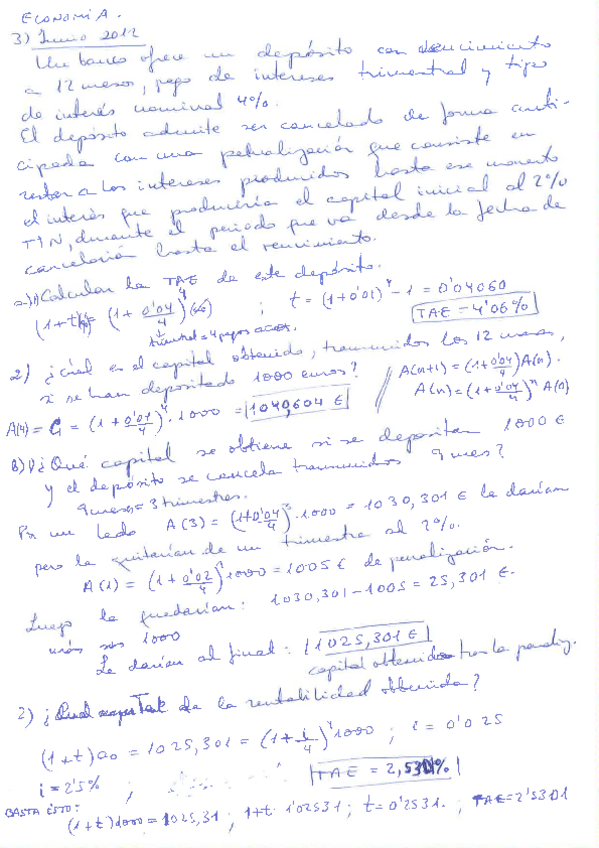 ECONOMÍA.
3) Junio 2012
Un banco ofrece un depósito con vencimiento
a 12 meses, pago de intereses trimestral y tipo
de interés nominal 4%.
El depósito admite ser cancelado de forma anti-
cipada con una penalización que consiste en
restar a los intereses producidos hasta ese momento
el interés que produciría el capital inicial al 2%
TIN, durante el periodo que va desde la fecha de
cancelación hasta el vencimiento.
a) 1) Calcular la TAE de este depósito.
(1+t) = (1 + 0'04/4)^4 ; t = (1+0'01)^4 - 1 = 0'04060
trimestral = 4 pagos TAE = 4'06%
2) ¿Cuál es el capital obtenido, transcurridos los 12 meses,
si se han depositado 1000 euros? A(n+1) = (1+0'04/4) A(n).
A(n) = (1+0'04/4)^n A(0)
A(4) = C = (1 + 0'04/4)^4 · 1000 = 1040,604 €
b) 1) ¿Qué capital se obtiene si se depositan 1000 €
y el depósito se cancela transcurridos 9 mes?
9 meses = 3 trimestres.
Por un lado A(3) = (1+0'04/4)^3 · 1000 = 1030,301 € le darían
pero le quitarían de un trimestre al 2%.
A(1) = (1 + 0'02/4)^1 1000 = 1005 € de penalización.
Luego le quedarían: 1030,301 - 1005 = 25,301 €.
más sus 1000
Le darían al final: 1025,301 €
capital obtenido tras la penaliz.
2) ¿ TAE de la rentabilidad obtenida?
(1+t)a0 = 1025,301 = (1 + i/4)^4 1000 ; i = 0'025
i = 2'5% ; TAE = 2,5301%
BASTA ESTO:
(1+t)1000 = 1025,31 ; 1+t = 1'02531 ; t = 0'2531. ; TAE = 2'5301